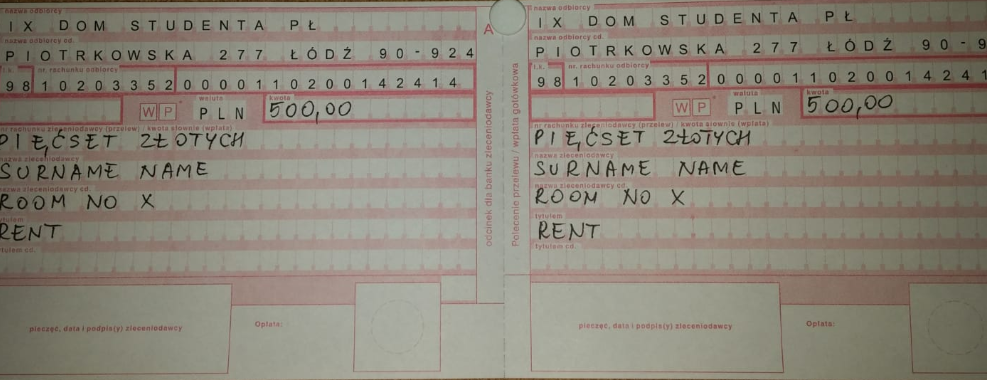 nazwa odbiorcy
IX DOM STUDENTA PŁ
nazwa odbiorcy cd.
PIOTRKOWSKA 277 ŁÓDŹ 90-924
l.k. nr. rachunku odbiorcy
98 10203352 0000110200142414
waluta kwota
WP PLN 500,00
nr rachunku zleceniodawcy (przelew) / kwota słownie (wpłata)
PIĘĆSET ZŁOTYCH
nazwa zleceniodawcy
SURNAME NAME
nazwa zleceniodawcy cd.
ROOM NO X
tytułem
RENT
tytułem cd.
pieczęć, data i podpis(y) zleceniodawcy
Opłata:
A
odcinek dla banku zleceniodawcy
Polecenie przelewu / wpłata gotówkowa
nazwa odbiorcy
IX DOM STUDENTA PŁ
nazwa odbiorcy cd.
PIOTRKOWSKA 277 ŁÓDŹ 90-9
l.k. nr. rachunku odbiorcy
98 10203352 000011020014241
waluta kwota
WP PLN 500,00
nr rachunku zleceniodawcy (przelew) / kwota słownie (wpłata)
PIĘĆSET ZŁOTYCH
nazwa zleceniodawcy
SURNAME NAME
nazwa zleceniodawcy cd.
ROOM NO X
tytułem
RENT
tytułem cd.
pieczęć, data i podpis(y) zleceniodawcy
Opłata: